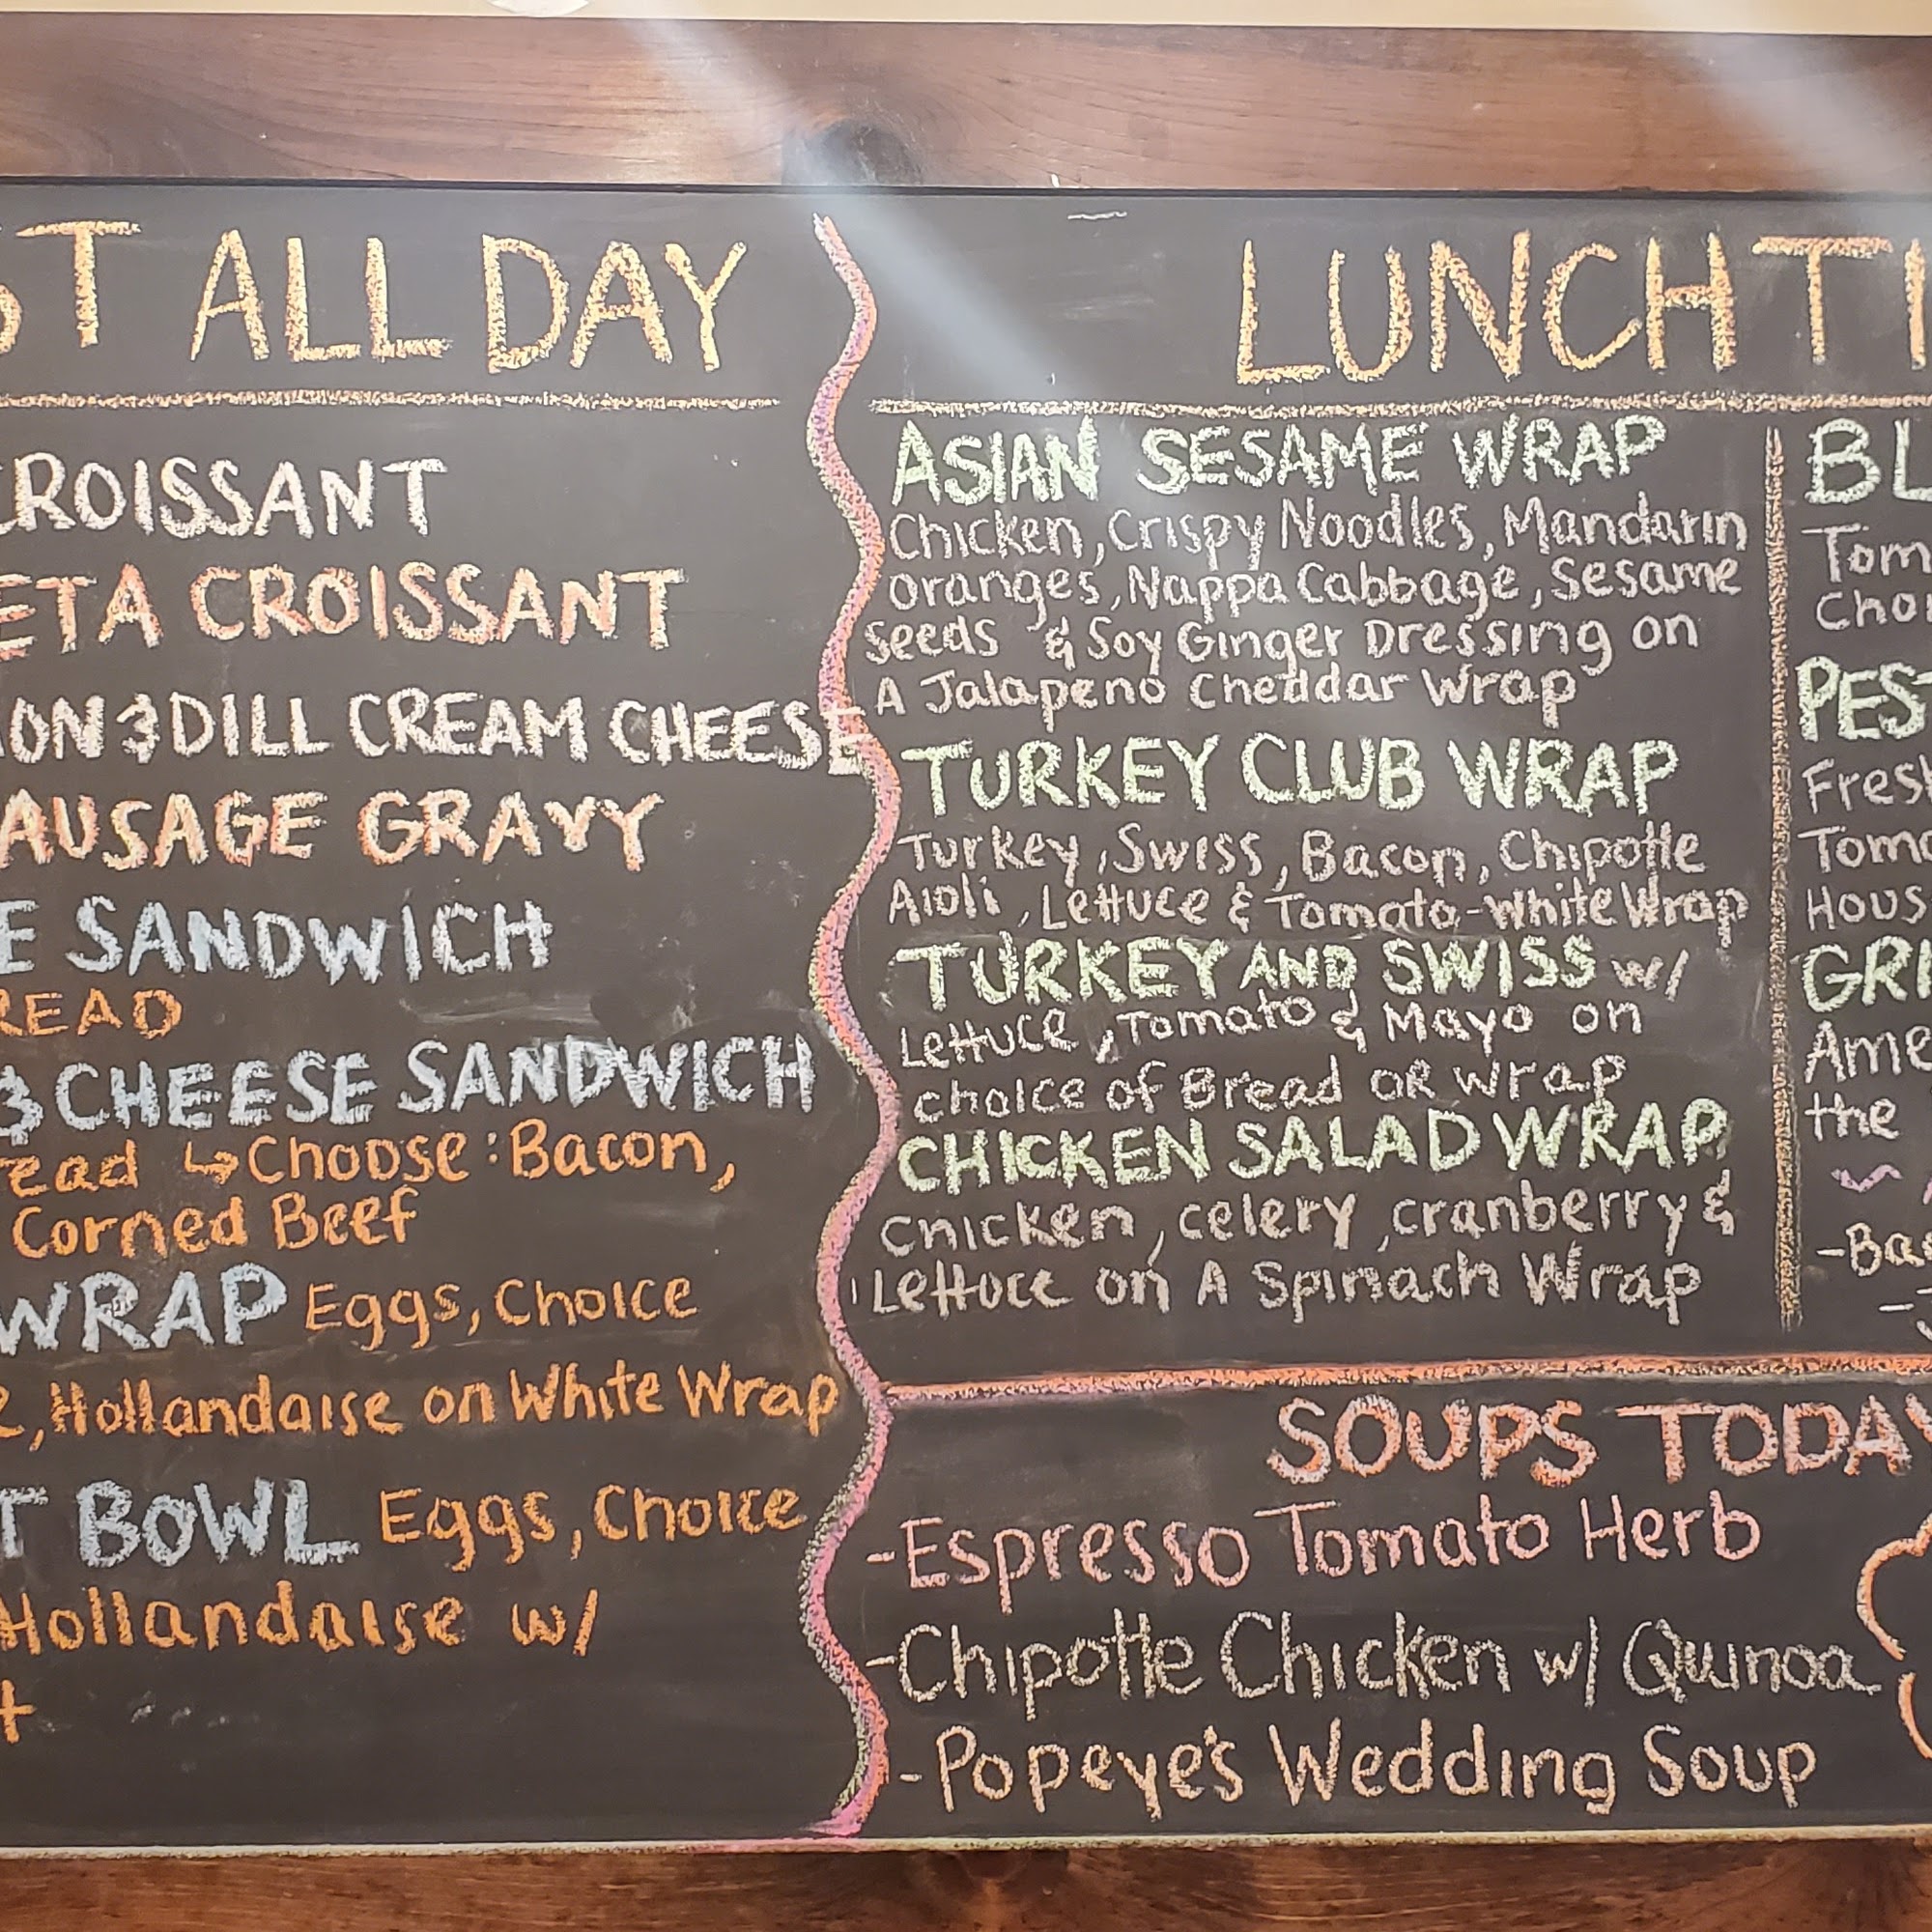 ST ALL DAY
CROISSANT
ETA CROISSANT
ON & DILL CREAM CHEESE
AUSAGE GRAVY
E SANDWICH
READ
& CHEESE SANDWICH
ead ↳ Choose: Bacon,
Corned Beef
WRAP Eggs, Choice
e, Hollandaise on White Wrap
T BOWL Eggs, Choice
Hollandaise w/
t
LUNCH TI
ASIAN SESAME WRAP
Chicken, Crispy Noodles, Mandarin
Oranges, Nappa Cabbage, Sesame
Seeds & Soy Ginger Dressing on
A Jalapeno Cheddar Wrap
TURKEY CLUB WRAP
Turkey, Swiss, Bacon, Chipotle
Aioli, Lettuce & Tomato-White Wrap
TURKEY AND SWISS w/
Lettuce, Tomato & Mayo on
choice of Bread OR wrap
CHICKEN SALAD WRAP
Chicken, celery, cranberry &
Lettuce on A Spinach Wrap
BL
Tom
Cho
PEST
Fresh
Toma
Hous
GRI
Ame
the
-Bas
SOUPS TODAY
-Espresso Tomato Herb
-Chipotle Chicken w/ Quinoa
-Popeye's Wedding Soup